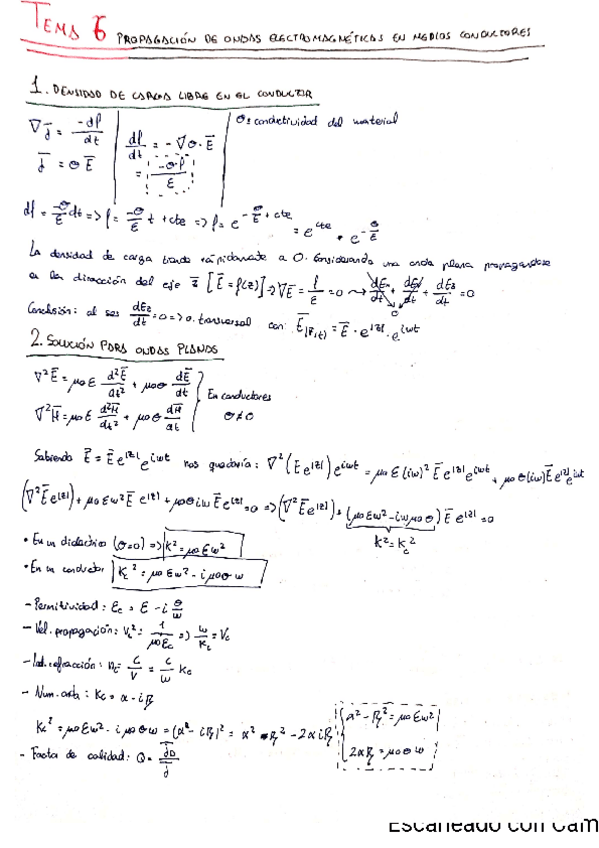 TEMA 6 PROPAGACIÓN DE ONDAS ELECTROMAGNÉTICAS EN MEDIOS CONDUCTORES
1. DENSIDAD DE CARGA LIBRE EN EL CONDUCTOR
∇J̅ = -dρ/dt
dρ/dt = -∇σ·E̅
σ = conductividad del material
J̅ = σE̅
= -σ·ρ/ε
dρ = -σ/ε dt => ρ = -σ/ε t + cte => ρ = e^(-σ/ε + cte) = e^cte · e^(-σ/ε)
La densidad de carga tiende rápidamente a 0. Considerando una onda plana propagándose
en la dirección del eje z [E̅ = f(z)] => ∇E̅ = ρ/ε = 0 → dEx/dt + dEy/dt + dEz/dt = 0
0
Conclusión: al ser dEz/dt = 0 => o. transversal con: E̅(r,t) = E̅ · e^|z| · e^iωt
2. SOLUCIÓN PARA ONDAS PLANAS
∇²E̅ = μ₀ε d²E̅/dt² + μ₀σ dE̅/dt
En conductores
∇²H̅ = μ₀ε d²H̅/dt² + μ₀σ dH̅/dt
σ ≠ 0
Sabiendo E̅ = E̅e^|z| e^iωt nos quedaría: ∇²(E̅e^|z|)e^iωt = μ₀ε(iω)² E̅e^|z| e^iωt + μ₀σ(iω)E̅e^|z| e^iωt
(∇²E̅e^|z|) + μ₀εω²E̅ e^|z| + μ₀σiωE̅e^|z| = 0 => (∇²E̅e^|z|) + (μ₀εω² - iωμ₀σ)E̅ e^|z| = 0
K² = Kc²
• En un dieléctrico (σ=0) => K² = μ₀εω²
• En un conductor Kc² = μ₀εω² - iμ₀σω
- Permitividad: εc = ε - i σ/ω
- Vel. propagación: Vc² = 1/μ₀εc => ω/Kc = Vc
- Ind. refracción: nc = c/V = c/ω Kc
- Num. onda: Kc = α - iβ
Kc² = μ₀εω² - iμ₀σω = (α² - iβ)² = α² - β² - 2αiβ
α² - β² = μ₀εω²
2αβ = μ₀σω
- Factor de calidad: Q = J̅D/J̅
Escaneado con Cam